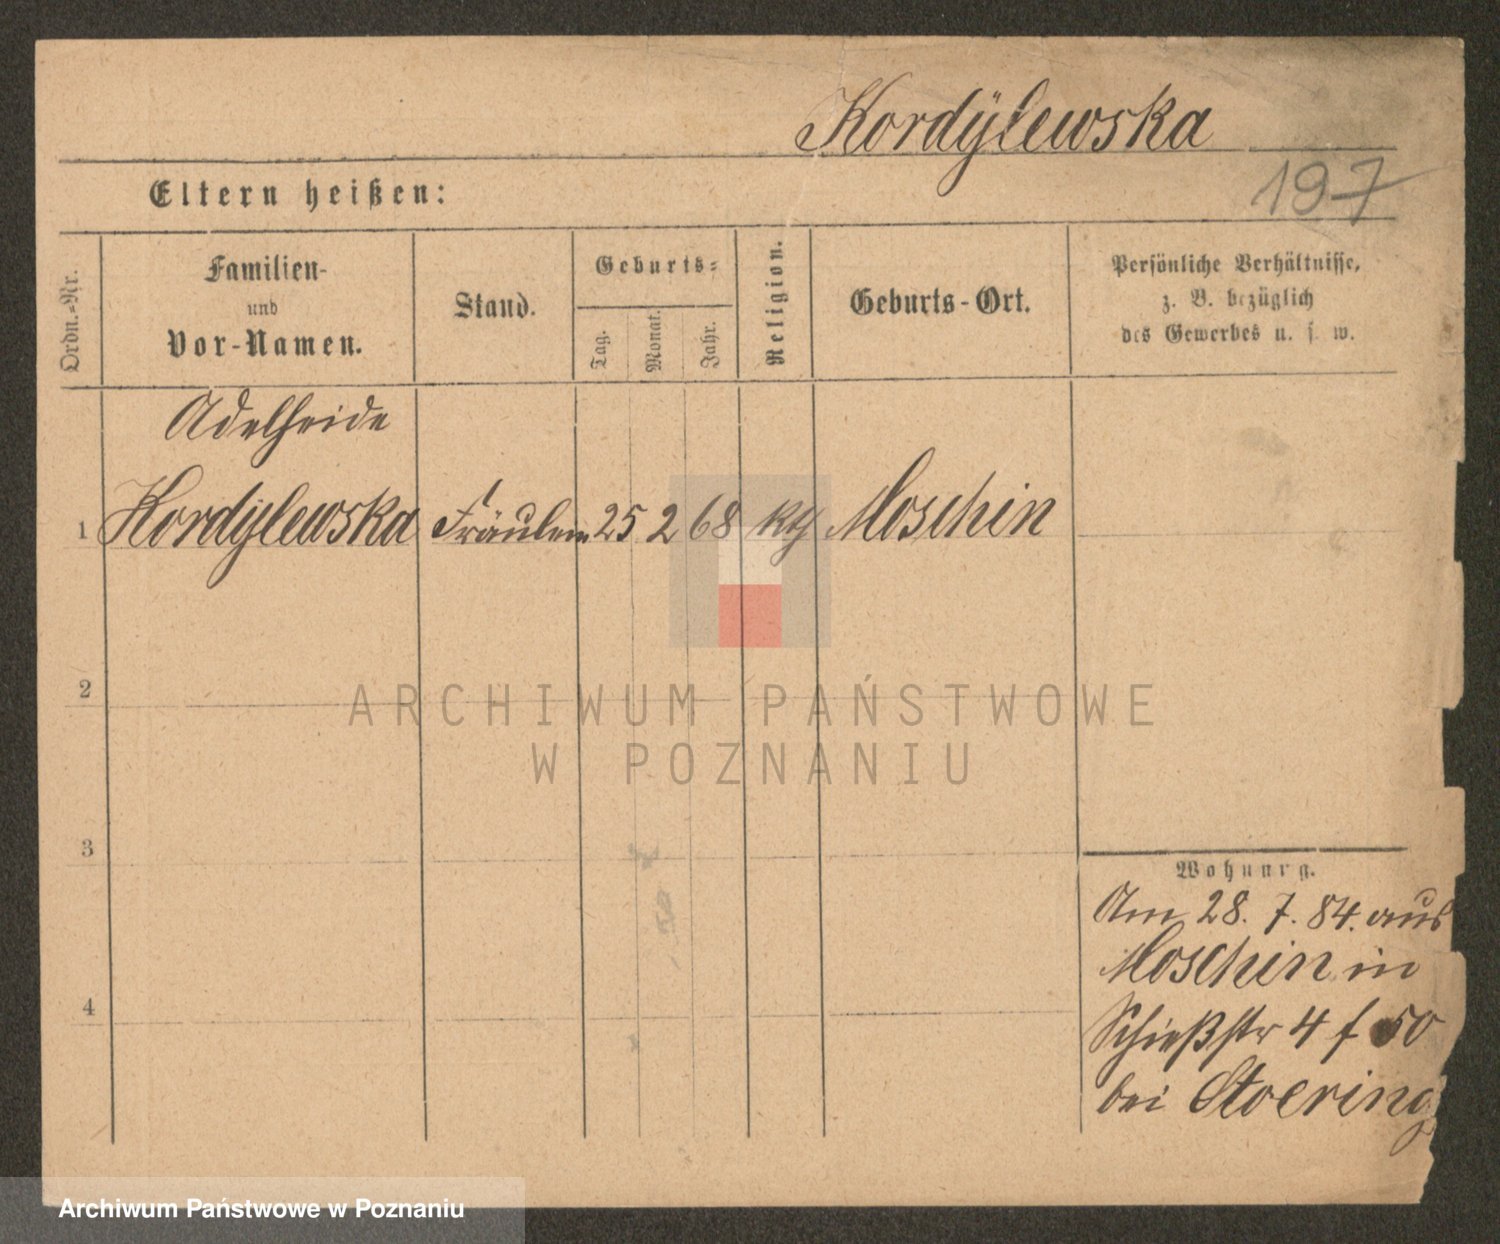 Kordÿlewska
197
Eltern heißen:
Ordn.-Nr.
Familien-
und
Vor-Namen.
Stand.
Geburts-
Tag.
Monat.
Jahr.
Religion.
Geburts-Ort.
Persönliche Verhältnisse,
z. B. bezüglich
des Gewerbes u. s. w.
Adelheide
1 Kordÿlewska Fräulein 25 2 68 kth Moschin
2
ARCHIWUM PAŃSTWOWE
W POZNANIU
3
Wohnung.
Am 28. 7. 84. aus
Moschin in
4
Schießstr 4 f 50
bei Stoering
Archiwum Państwowe w Poznaniu